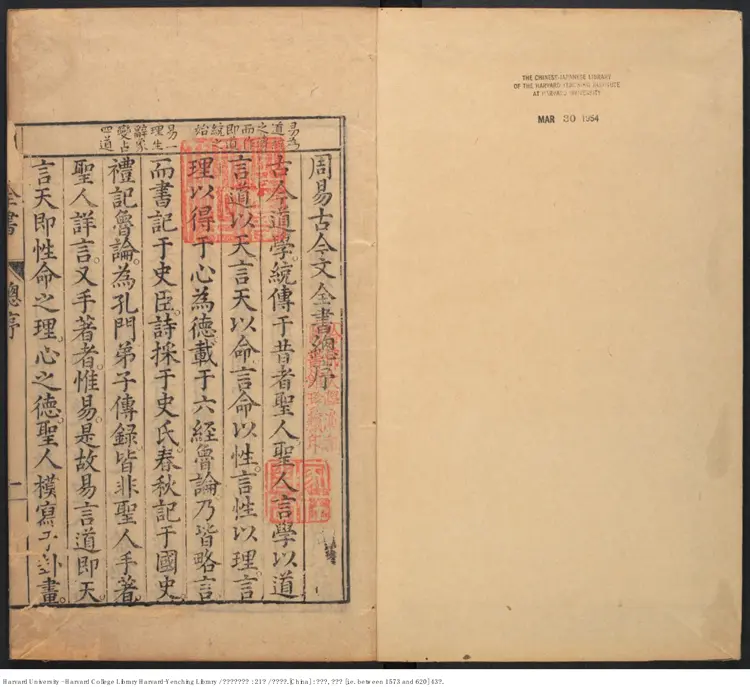 周易古今文全書總序
古今道學統傳于昔者聖人聖人言學以道
言道以天言天以命言命以性言性以理言
理以得于心為德載于六經魯論乃皆略言
而書記于史臣詩採于史氏春秋記于國史
禮記魯論為孔門弟子傳錄皆非聖人手著
聖人詳言又手著者惟易是故易言道即天
言天即性命之理心之德聖人模寫于卦畫
易一
理生
辭象
變占
四道
全書
總序
一
THE CHINESE-JAPANESE LIBRARY
OF THE HARVARD-YENCHING INSTITUTE
AT HARVARD UNIVERSITY
MAR 30 1954
Harvard University - Harvard College Library Harvard-Yenching Library / ??????? : 21? / ????. [China] : ???, ??? [i.e. between 1573 and 620] 43?.